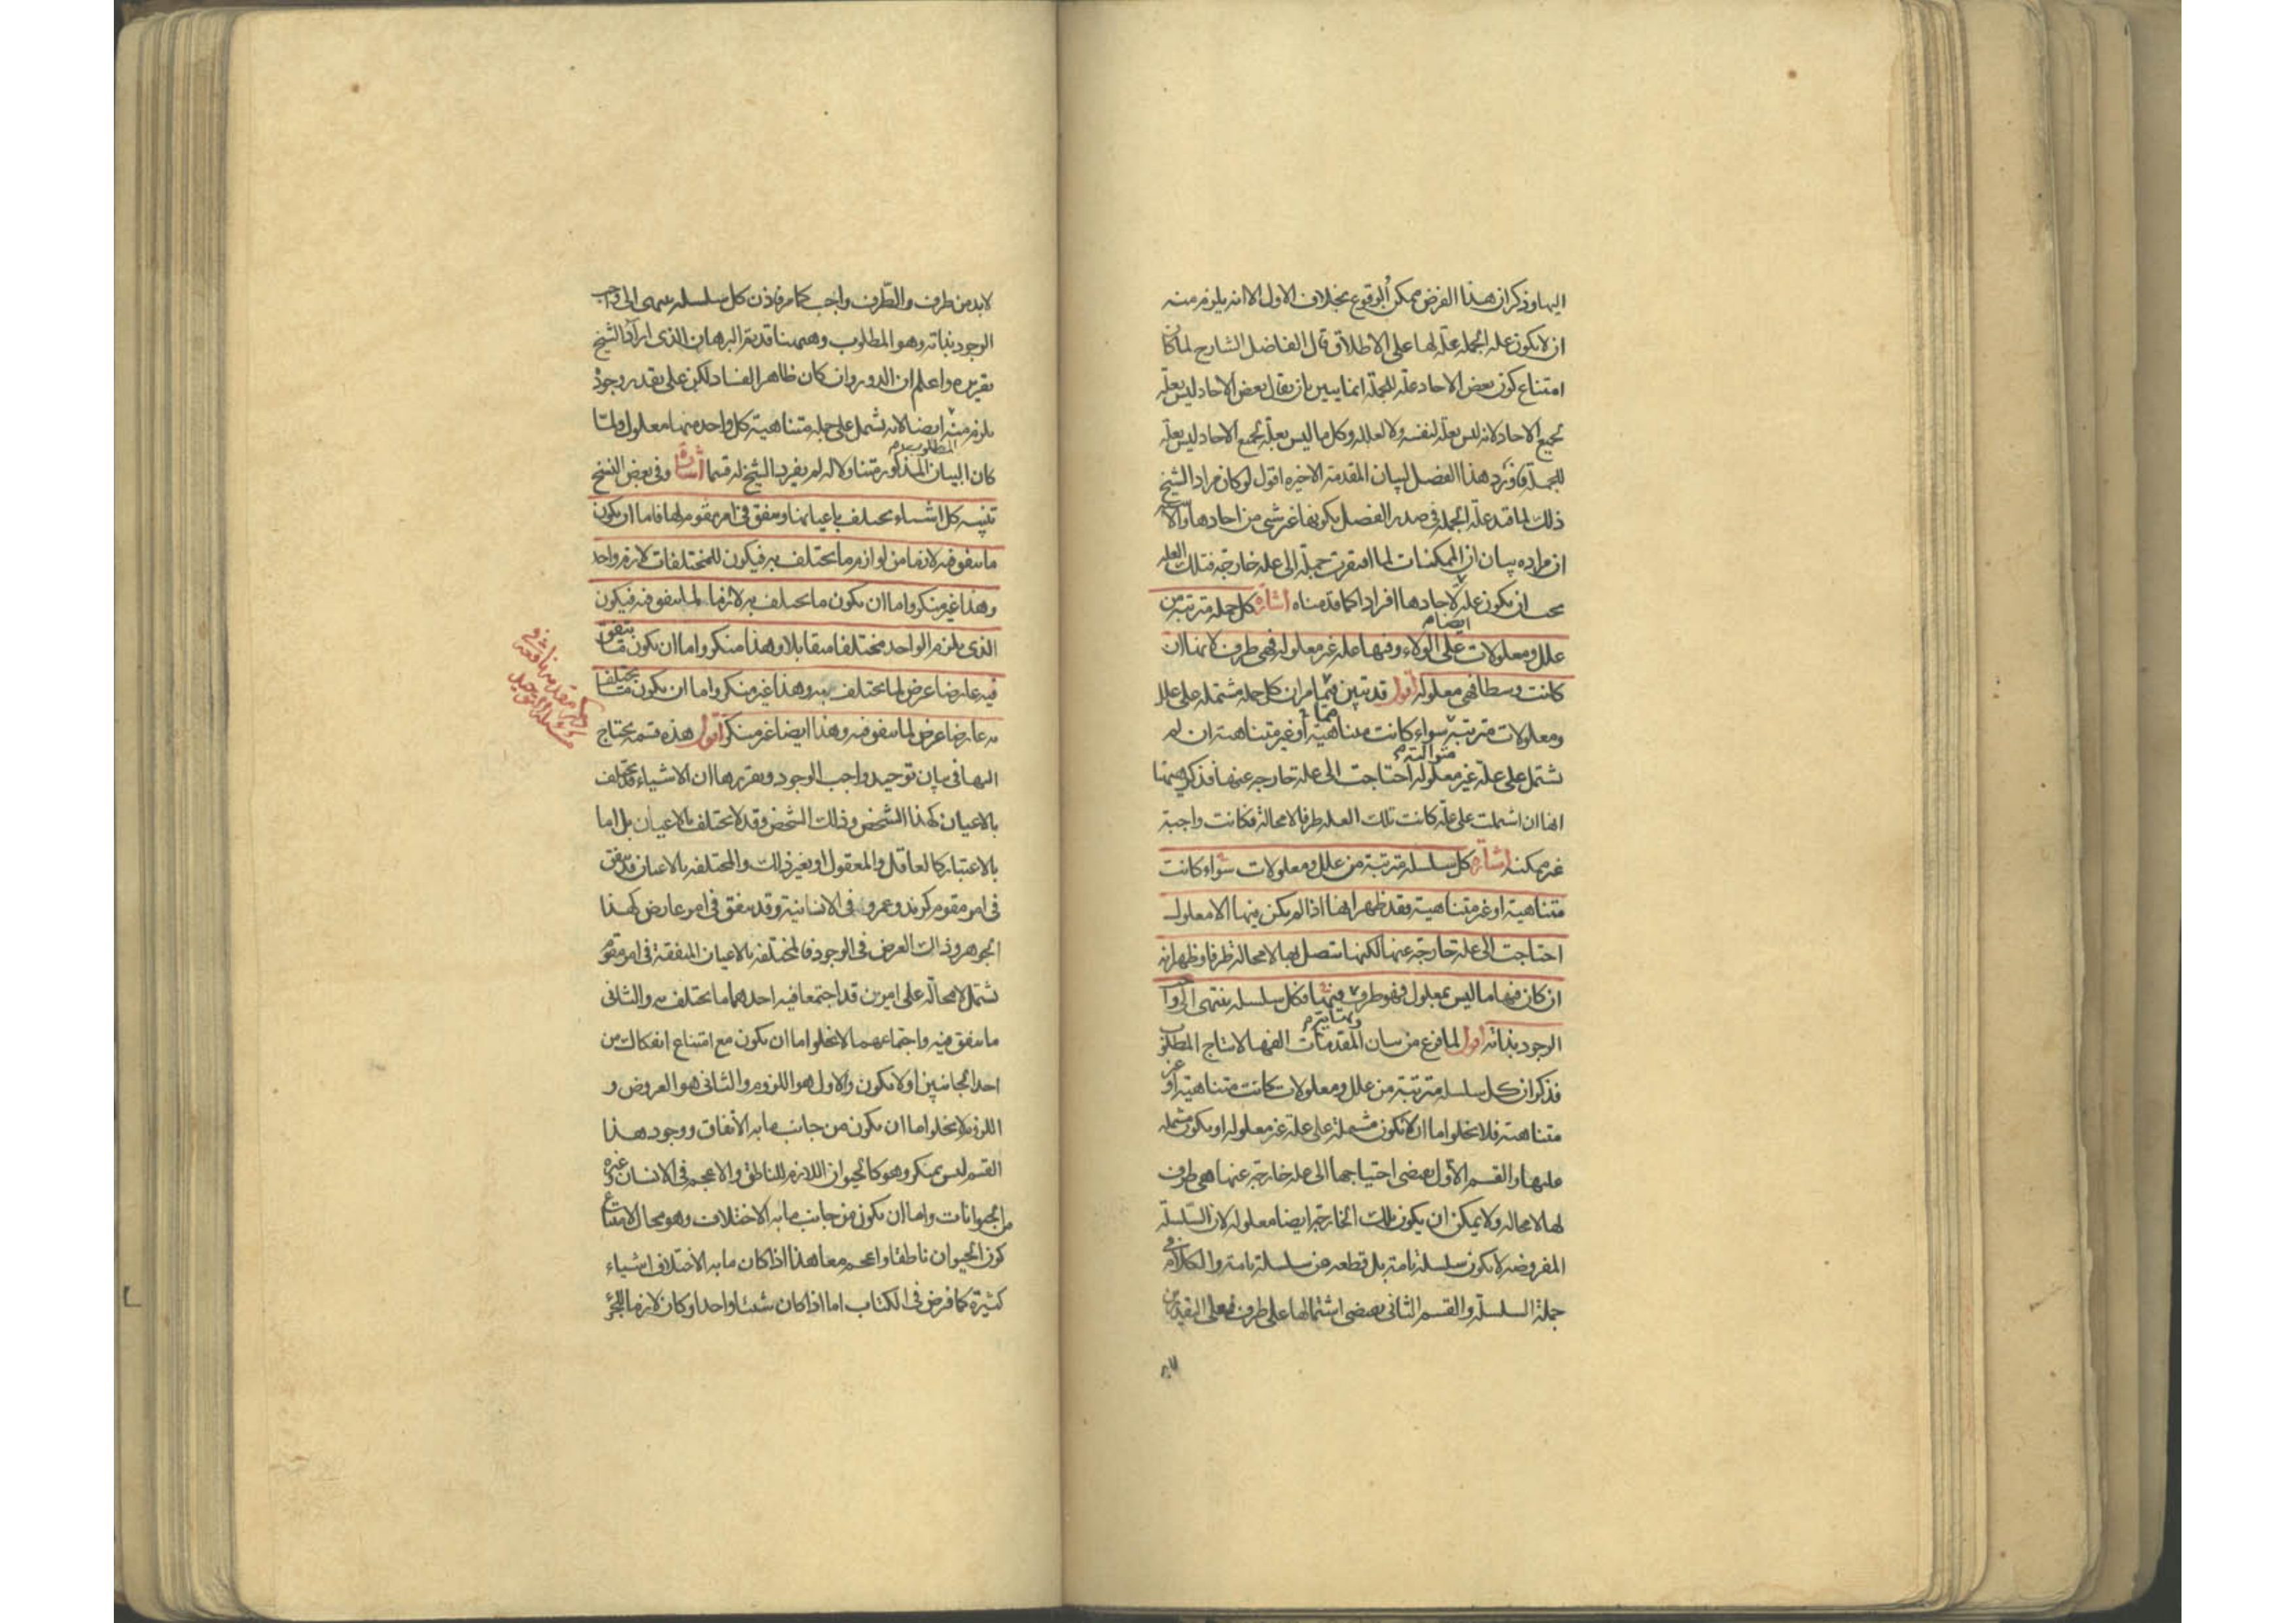 اليها وذكر ان هذا الفرض ممكن الوقوع بخلاف الاول الا انه يلزم منه
ان لا يكون علة الجملة علة لها على الاطلاق قال الفاضل الشارح لما كان
امتناع كون بعض الاحاد علة للجملة انما يبين بان يقال بعض الاحاد ليس بعلة
لجميع الاحاد لانه ليس بعلة لنفسه ولا لعلله وكل ما ليس بعلة لجميع الاحاد ليس بعلة
للجملة فاورد هذا الفصل لبيان المقدمة الاخيرة اقول لو كان مراد الشيخ
ذلك لما قيد علة الجملة في صدر الفصل بكونها غير شي من احادها والاشبه
ان مراده بيان ان الممكنات لما افتقرت جملة الى علة خارجة فتلك العلة
يجب ان يكون علة لاحادها افرادا كما قدمناه اشارة كل جملة مترتبة من
ايضا م
علل ومعلولات على الولاء وفيها علة غير معلولة فهي طرف لانها ان
كانت وسطا فهي معلولة اقول قد تبين مما مر ان كل جملة مشتملة على علل
ومعلولات مترتبة سواء كانت متناهية او غير متناهية ان لم
متوالية م
تشتمل على علة غير معلولة احتاجت الى علة خارجة عنها فذكر ههنا
انها ان اشتملت على علة كانت تلك العلة طرفا لا محالة فكانت واجبة
غير ممكنة اشارة كل سلسلة مترتبة من علل ومعلولات سواء كانت
متناهية او غير متناهية فقد ظهر انها اذا لم يكن فيها الا معلول
احتاجت الى علة خارجة عنها لكنها تتصل بها لا محالة طرفا وظهر انه
ان كان فيها ما ليس بمعلول فهو طرف ونهاية فكل سلسلة ينتهى الى واجب
الوجود بذاته اقول لما فرغ من بيان المقدمات الفها لانتاج المطلوب
فذكر ان كل سلسلة مترتبة من علل ومعلولات كانت متناهية او غير
متناهية فلا يخلو اما ان لا تكون مشتملة على علة غير معلولة او يكون مشتملة
عليها والقسم الاول يقتضي احتياجها الى علة خارجة عنها هي طرف
لها لا محالة ولا يمكن ان يكون تلك الخارجة ايضا معلولة لان السلسلة
المفروضة لا تكون سلسلة تامة بل قطعة من سلسلة تامة والكلام في
جملة السلسلة والقسم الثاني يقتضي اشتمالها على طرف فعلى التقديرين
لا بد من طرف والطرف واجب كما مر فاذن كل سلسلة ينتهى الى واجب
الوجود بذاته وهو المطلوب وههنا قد تم البرهان الذي اراد الشيخ
تقريره واعلم ان الدور وان كان ظاهر الفساد لكن على تقدير وجوده
يلزم منه ايضا لانه يشتمل على جملة متناهية كل واحد منها معلول ولما
المطلوب م
كان البيان المذكور متناولا له لم يفرد الشيخ له قسما اشارة وفي بعض النسخ
تنبيه كل اشياء يختلف باعيانها ويتفق في امر مقوم لها فاما ان يكون
ما يتفق فيه لازما من لوازم ما يختلف به فيكون للمختلفات لازم واحد
وهذا غير منكر واما ان يكون ما يختلف به لازما لما يتفق فيه فيكون
الذي يلزم الواحد مختلفا متقابلا وهذا منكر واما ان يكون ما يتفق
فيه عارضا عرض لما يختلف به وهذا غير منكر واما ان يكون ما يختلف
به عارضا عرض لما يتفق فيه وهذا ايضا غير منكر اقول هذه قسمة يحتاج
اليها في بيان توحيد واجب الوجود وتقريرها ان الاشياء قد يختلف
بالاعيان كهذا الشخص وذلك الشخص وقد لا يختلف بالاعيان بل اما
بالاعتبار كالعاقل والمعقول او بغير ذلك والمختلفة بالاعيان قد يتفق
في امر مقوم كزيد وعمرو في الانسانية وقد يتفق في امر عارض كهذا
الجوهر وذلك العرض في الوجود فالمختلفة بالاعيان المتفقة في امر مقوم
تشتمل لا محالة على امرين قد اجتمعا فيه احدهما ما يختلف به والثاني
ما يتفق فيه واجتماعهما لا يخلوا اما ان يكون مع امتناع انفكاك من
احد الجانبين او لا يكون والاول هو اللزوم والثاني هو العروض و
اللزوم لا يخلو اما ان يكون من جانب ما به الاتفاق ووجود هذا
القسم ليس بمنكر وهو كالحيوان اللازم للناطق والاعجم في الانسان وغيره
من الحيوانات واما ان يكون من جانب ما به الاختلاف وهو محال لامتناع
كون الحيوان ناطقا واعجم معا هذا اذا كان ما به الاختلاف اشياء
كثيرة كما فرض في الكتاب اما اذا كان شيئا واحدا وكان لازما للجزء